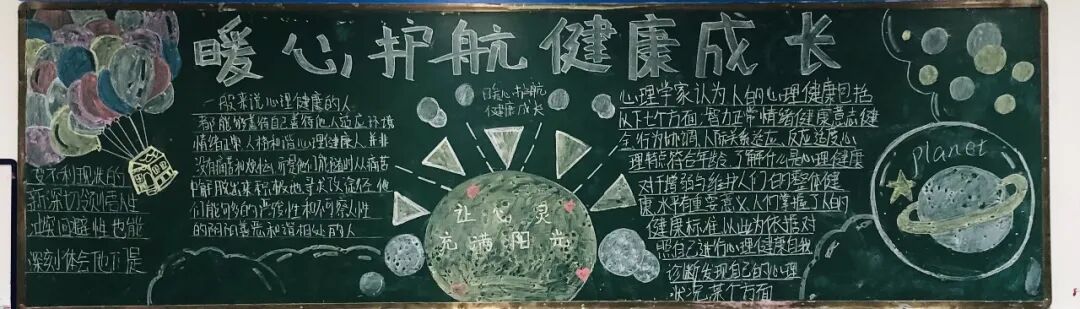 暖心护航健康成长
一般来说心理健康的人
都能够善待自己善待他人适应环境
情绪正常人格和谐心理健康人并非
没有痛苦和烦恼而是他们能适时从痛苦
中解脱出来积极地寻求改变
们能够
的
和谐相处的人
暖心护航
健康成长
让心灵
充满阳光
心理学家认为人的心理健康包括
以下七个方面智力正常情绪健康意志健
全行为协调人际关系适应反应适度心
理特点符合年龄了解什么是心理健康
对于增强与维护人们的整体健
康水平有重要意义人们掌握了人的
健康标准以此为依据对
照自己进行心理健康自我
诊断发现自己的心理
状况某个方面
planet
深刻体会他